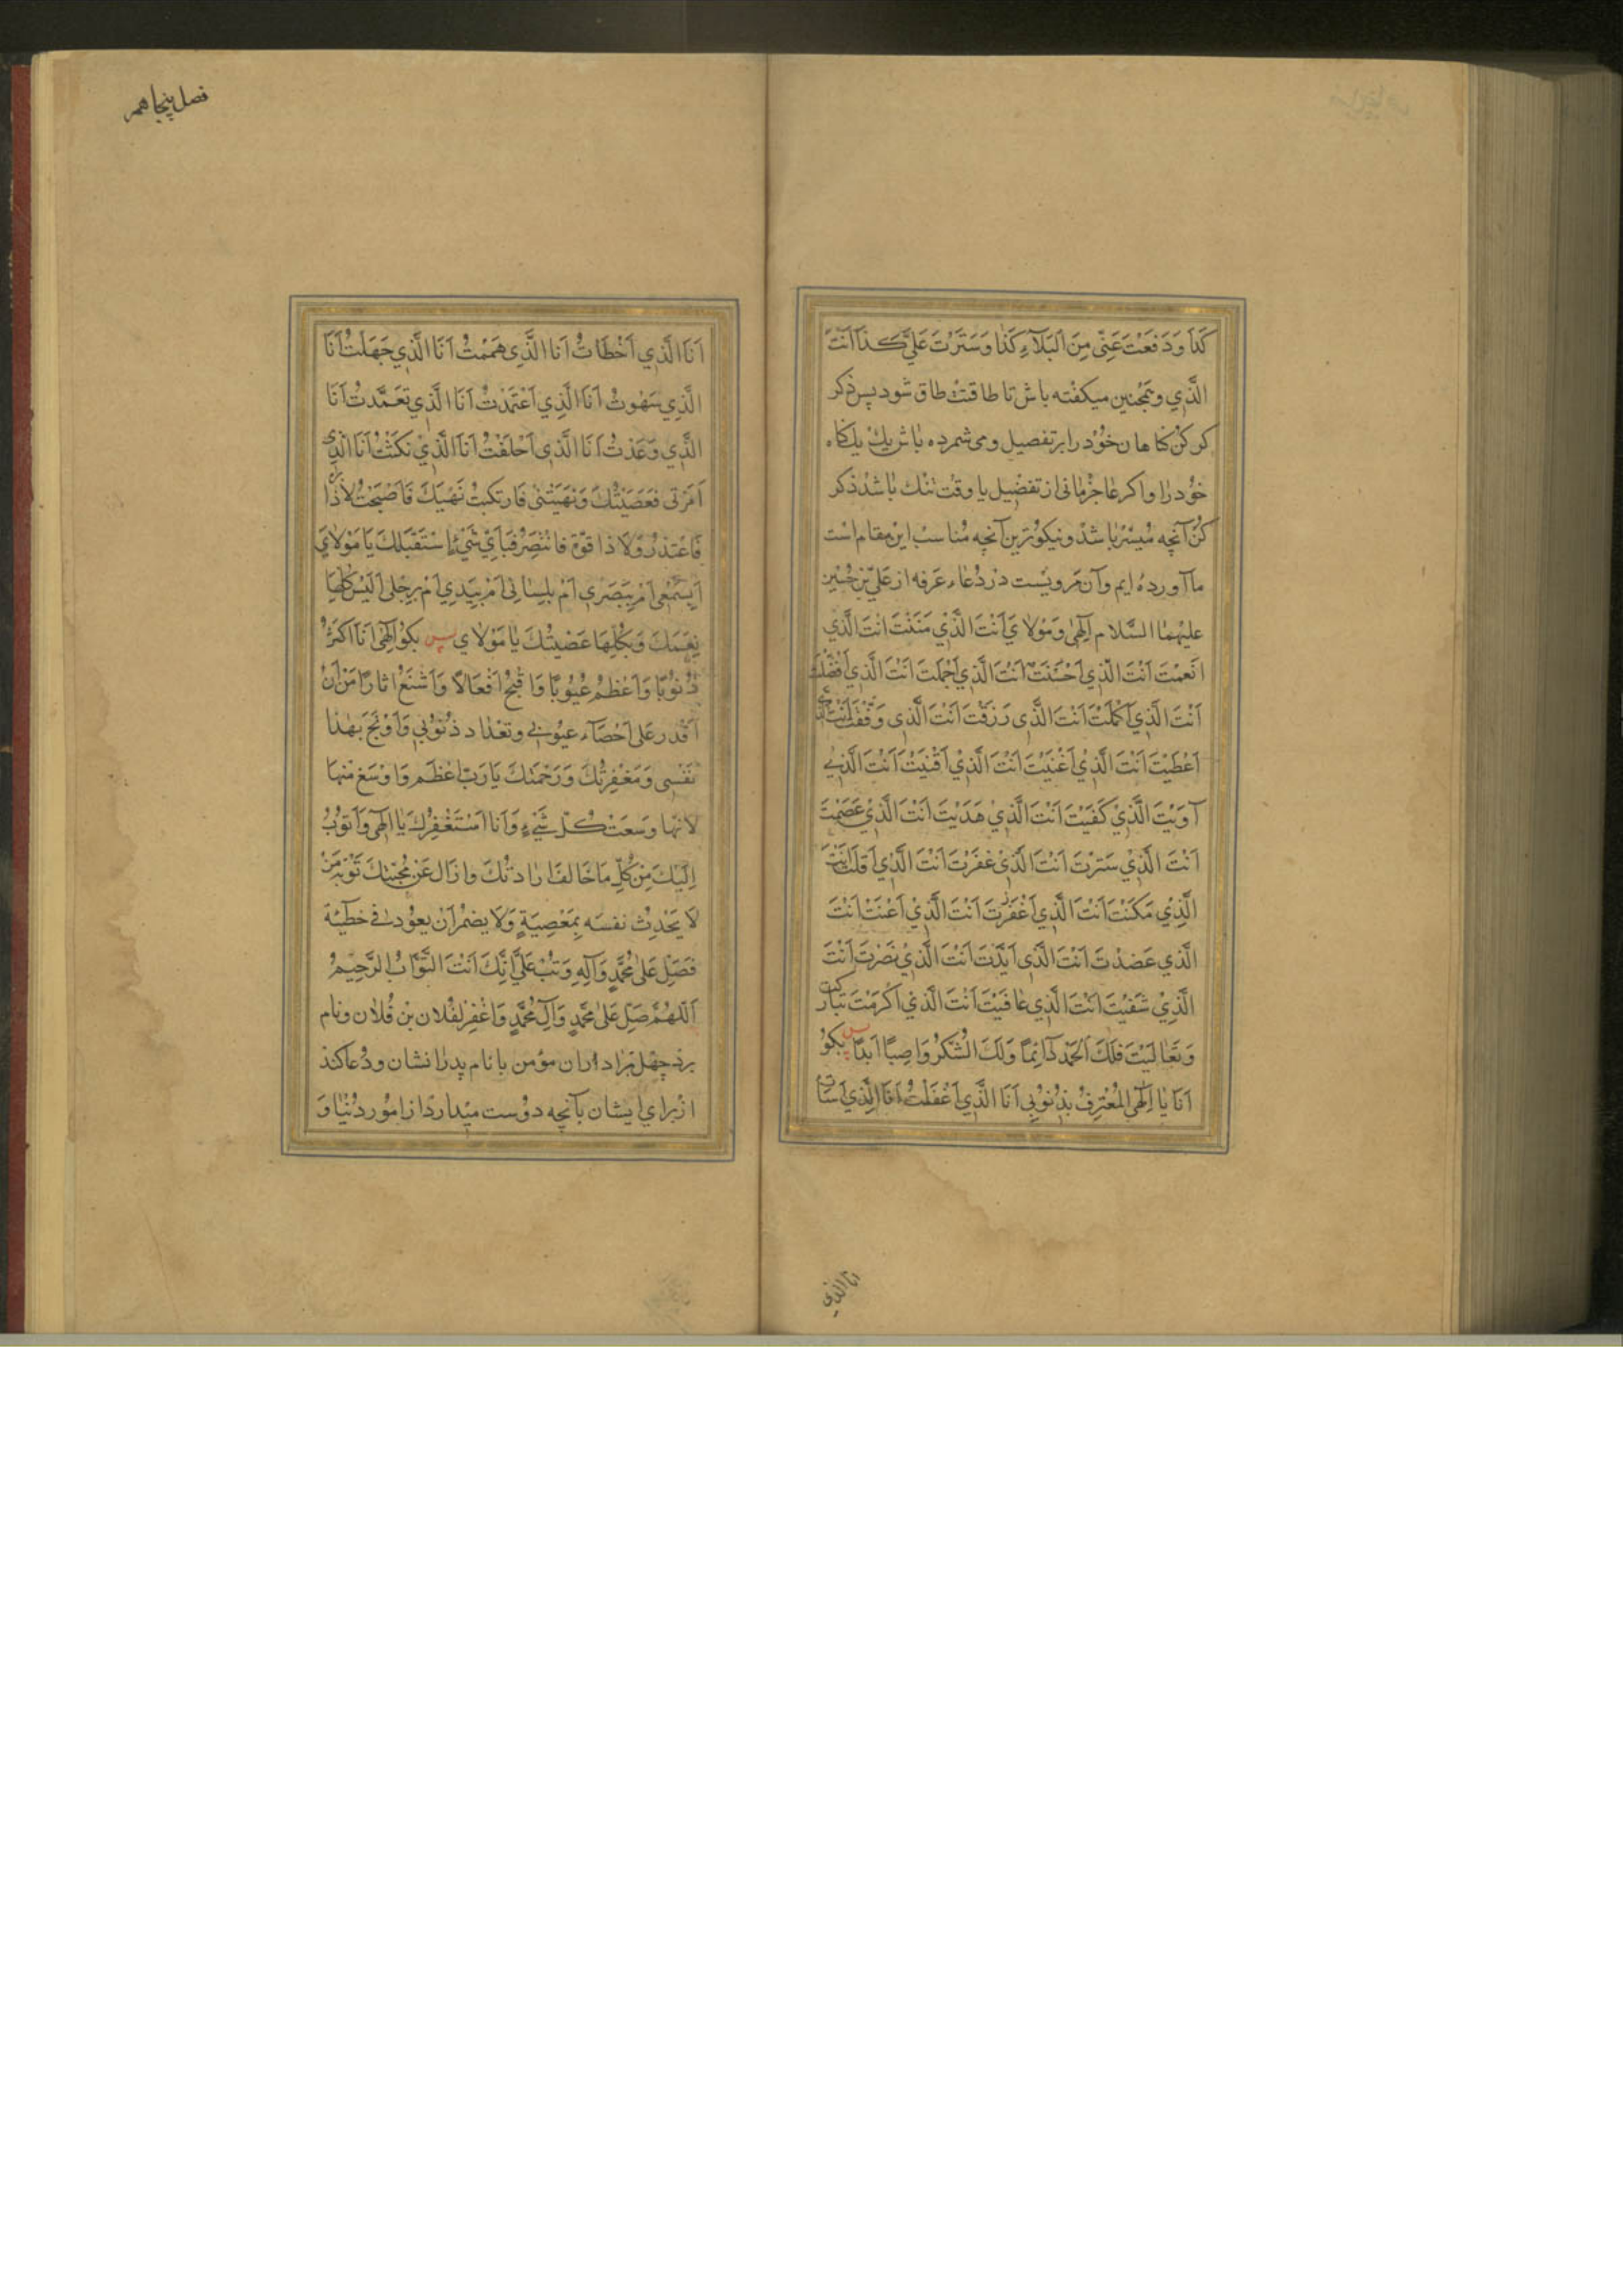 كَذَا وَدَفَعْتَ عَنِّي مِنَ الْبَلَآءِ كَذَا وَسَتَرْتَ عَلَيَّ كَذَا اَنْتَ
الَّذِي وهمچنین میکفته باش تا طاقتت طاق شود پس ذکر
کر کن کناهان خود را بر تفصیل و می شمرده باش یك یك کاه
خود را و اکر عاجز مانی از تفصیل یا وقت تنك باشد ذکر
کن آنچه میسّر باشد و نیکوترین آنچه مناسب این مقام است
ما آورده ایم وآن مرویست در دعاء عرفه از علی بن حسین
علیهما السَّلام اِلٰهِي وَمَوْلايَ اَنْتَ الَّذِي مَنَنْتَ اَنْتَ الَّذِي
اَنْعَمْتَ اَنْتَ الَّذِي اَحْسَنْتَ اَنْتَ الَّذِي اَجْمَلْتَ اَنْتَ الَّذِي اَفْضَلْتَ
اَنْتَ الَّذِي اَكْمَلْتَ اَنْتَ الَّذِي رَزَقْتَ اَنْتَ الَّذِي وَفَّقْتَ اَنْتَ الَّذِي
اَعْطَيْتَ اَنْتَ الَّذِي اَغْنَيْتَ اَنْتَ الَّذِي اَقْنَيْتَ اَنْتَ الَّذِي
آوَيْتَ الَّذِي كَفَيْتَ اَنْتَ الَّذِي هَدَيْتَ اَنْتَ الَّذِي عَصَمْتَ
اَنْتَ الَّذِي سَتَرْتَ اَنْتَ الَّذِي غَفَرْتَ اَنْتَ الَّذِي اَقَلْتَ اَنْتَ
الَّذِي مَكَنْتَ اَنْتَ الَّذِي اَغْفَرْتَ اَنْتَ الَّذِي اَعَنْتَ اَنْتَ
الَّذِي عَضَدْتَ اَنْتَ الَّذِي اَيَّدْتَ اَنْتَ الَّذِي نَصَرْتَ اَنْتَ
الَّذِي شَفَيْتَ اَنْتَ الَّذِي عَافَيْتَ اَنْتَ الَّذِي اَكْرَمْتَ تَبَارَكْتَ
وَتَعَالَيْتَ فَلَكَ الْحَمْدُ دَائِمًا وَلَكَ الشُّكْرُ وَاصِبًا اَبَدًا پس بکو
اَنَا يَا اِلٰهِي الْمُعْتَرِفُ بِذُنُوبِي اَنَا الَّذِي اَغْفَلْتُ اَنَا الَّذِي اَسَاتُ
انا الذی
فصل پنجاهم
اَنَا الَّذِي اَخْطَاتُ اَنَا الَّذِي هَمَمْتُ اَنَا الَّذِي جَهِلْتُ اَنَا
الَّذِي سَهَوْتُ اَنَا الَّذِي اعْتَمَدْتُ اَنَا الَّذِي تَعَمَّدْتُ اَنَا
الَّذِي وَعَدْتُ اَنَا الَّذِي اَخْلَفْتُ اَنَا الَّذِي نَكَثْتُ اَنَا الَّذِي
اَمَرْتَنِي فَعَصَيْتُكَ وَنَهَيْتَنِي فَارْتَكَبْتُ نَهْيَكَ فَاَصْبَحْتُ لَا ذَا
فَاَعْتَذِرُ وَلَا ذَا قُوَّة فَانْتَصِرُ فَبِاَيِّ شَيْءٍ اَسْتَقْبِلُكَ يَا مَوْلَايَ
اَبِسَمْعِي اَمْ بِبَصَرِي اَمْ بِلِسَانِي اَمْ بِيَدِي اَمْ بِرِجْلِي اَلَيْسَ كُلُّهَا
نِعَمَكَ وَبِكُلِّهَا عَصَيْتُكَ يَا مَوْلَايَ پس بکو اِلٰهِي اَنَا اَكْثَرُ
ذُنُوبًا وَاَعْظَمُ عُيُوبًا وَاَقْبَحُ اَفْعَالًا وَاَشْنَعُ اثَارًا مَنْ اَنْ
اَقْدِرَ عَلَى اَحْصَاءِ عُيُوبِي وَتَعْدَادِ ذُنُوبِي وَاُوَبِّخُ بِهٰذَا
نَفْسِي وَمَغْفِرَتُكَ وَرَحْمَتُكَ يَا رَبِّ اَعْظَمُ وَاَوْسَعُ مِنْهَا
لِاَنَّهَا وَسِعَتْ كُلَّ شَيْءٍ وَاَنَا اَسْتَغْفِرُكَ يَا اِلٰهِي وَاَتُوبُ
اِلَيْكَ مِنْ كُلِّ مَا خَالَفَ اِرَادَتَكَ وَازَالَ عَنْ مَحَبَّتِكَ تَوْبَةَ مَنْ
لَا يُحَدِّثُ نَفْسَه بِمَعْصِيَةٍ وَلَا يُضْمِرُ اَنْ يَعُودَ فِي خَطِيئَة
فَصَلِّ عَلَى مُحَمَّدٍ وَآلِهِ وَتُبْ عَلَيَّ اِنَّكَ اَنْتَ التَّوَّابُ الرَّحِيمُ
اَللّٰهُمَّ صَلِّ عَلَى مُحَمَّدٍ وَآلِ مُحَمَّدٍ وَاغْفِرْ لِفُلَان بْن فُلَان ونام
برد چهل برادران مؤمن با نام پدران شان ودعا کند
از برای ایشان بآنچه دوست میدارد از امور دنیا وَ